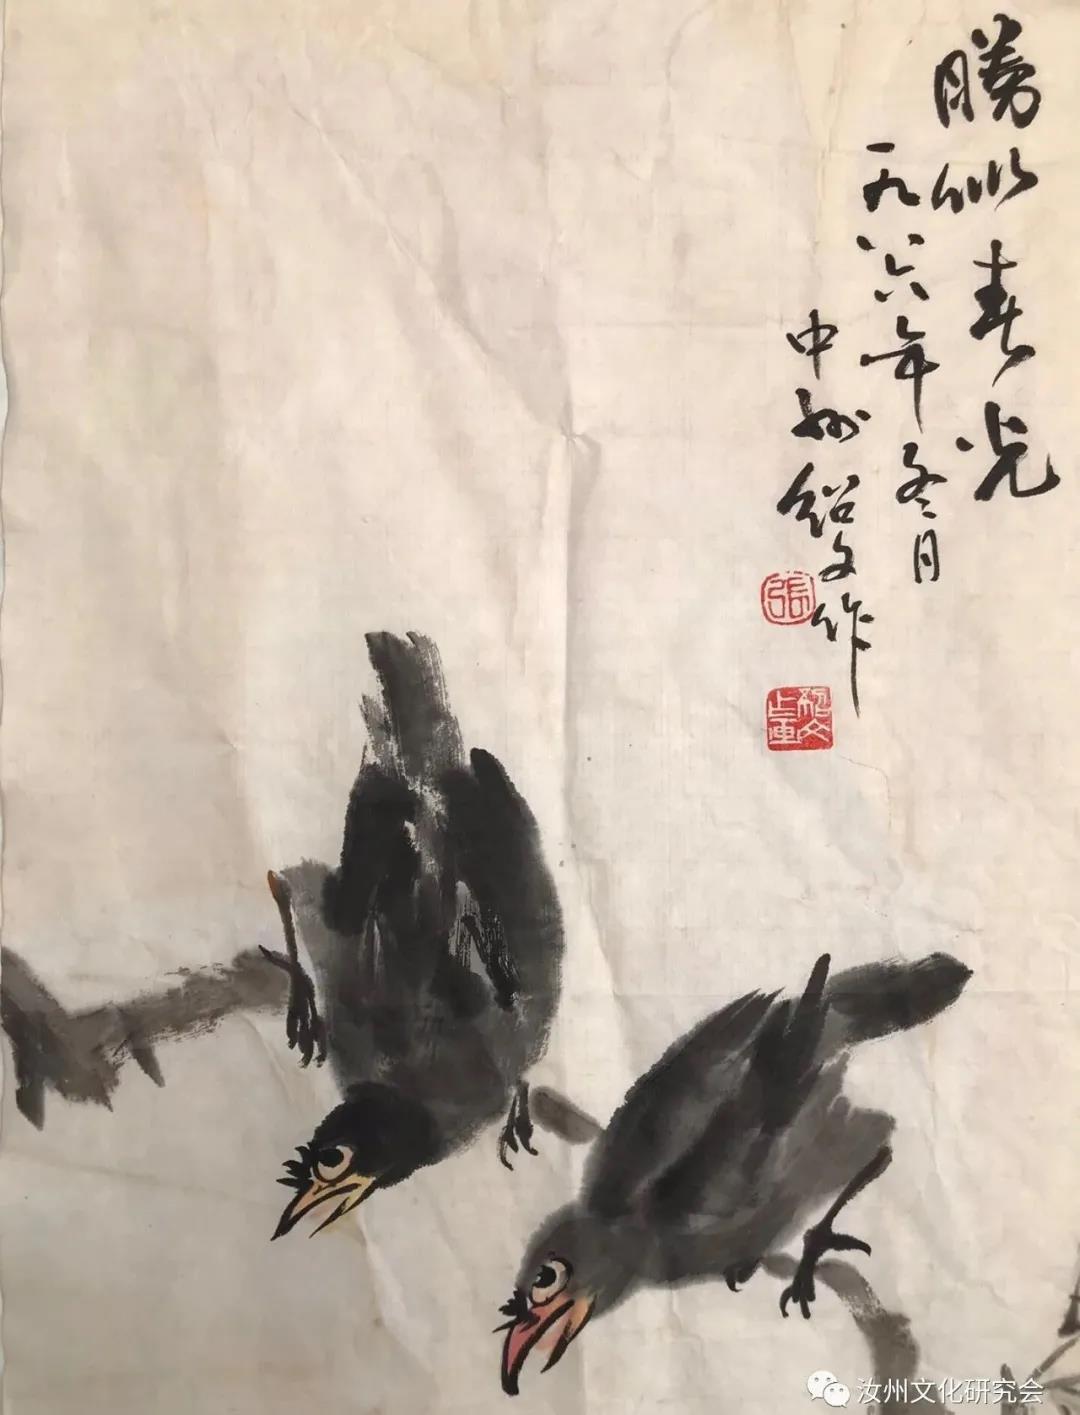 勝似春光
一九八六年冬月
中州绍文作
張
紹文
汝州文化研究会